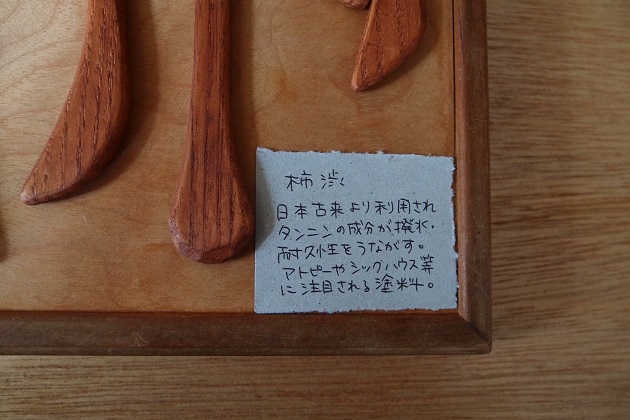 柿渋
日本古来より利用され
タンニンの成分が撥水・
耐久性をうながす。
アトピーやシックハウス等
に注目される塗料。